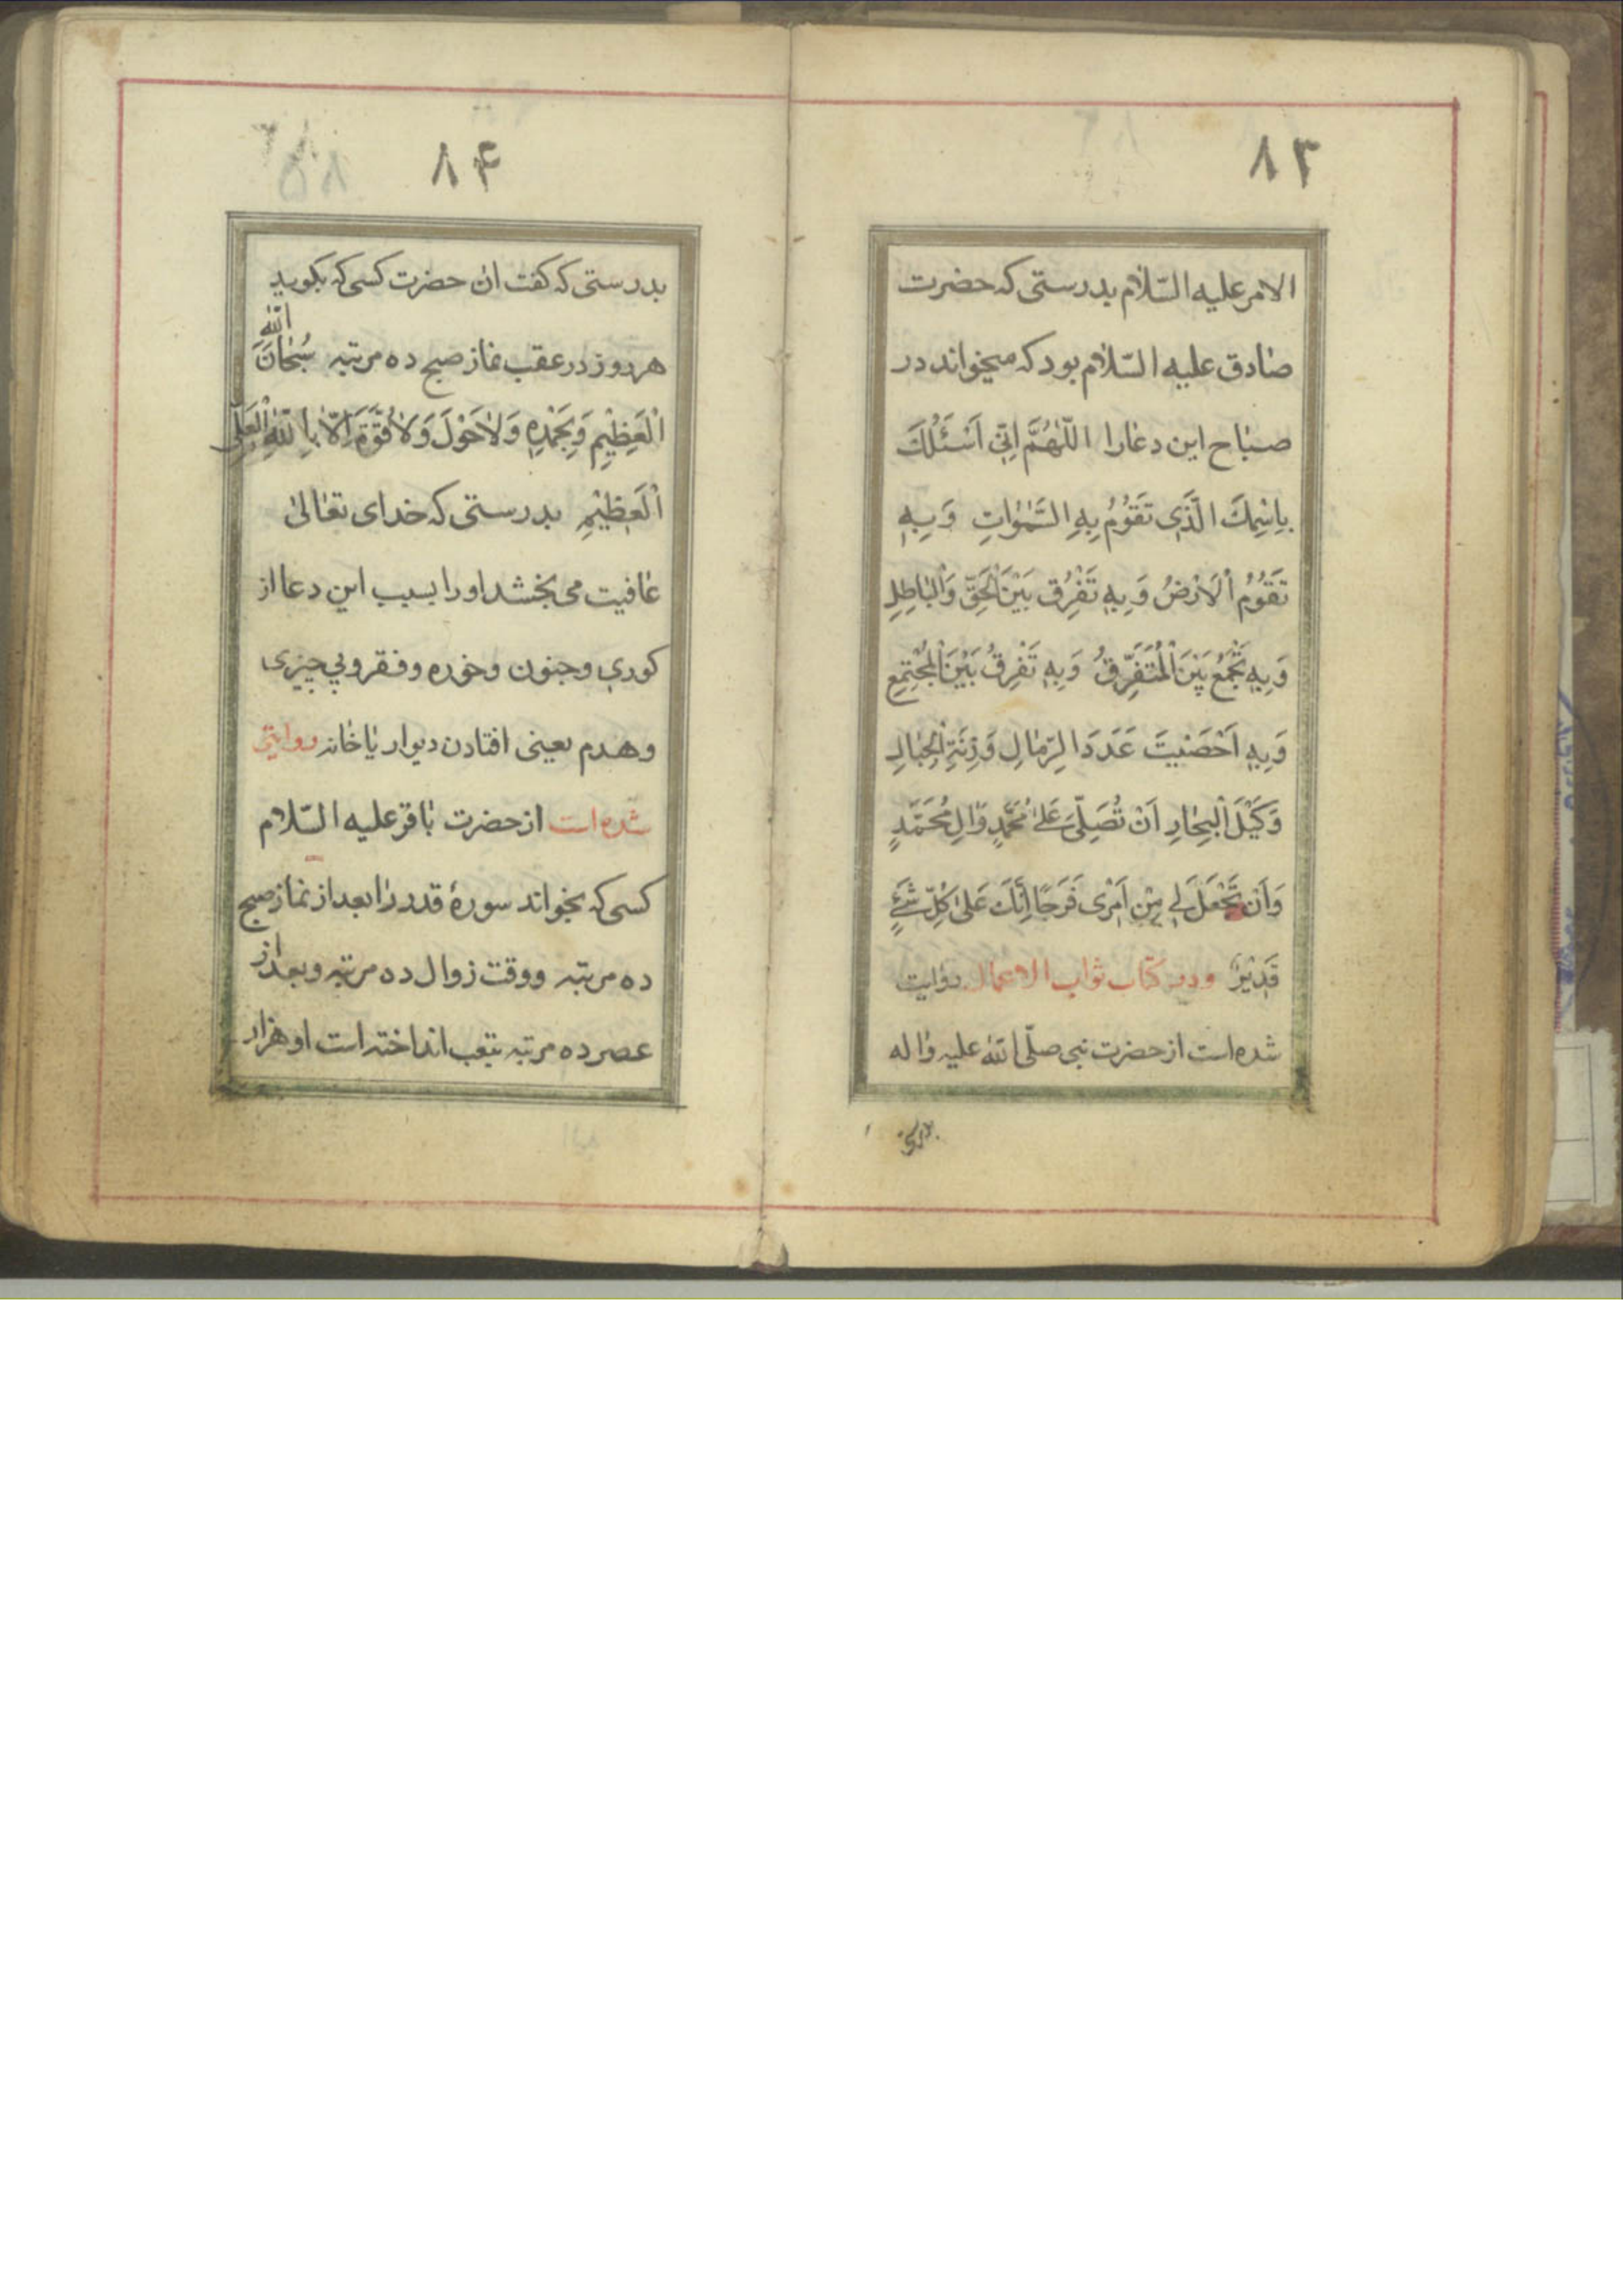 ۸۳
الامر علیه السّلام بدرستی که حضرت
صادق علیه السّلام بود که میخواند در
صباح این دعا را اللّٰهُمَّ اِنّی اَسْئَلُكَ
بِاسْمِكَ الَّذی تَقُوْمُ بِهِ السَّمٰوٰاتِ وَ بِهِ
تَقُوْمُ الْاَرْضُ وَ بِهِ تَفْرُقُ بَیْنَ الْحَقِّ وَالْبٰاطِلِ
وَ بِهِ تَجْمَعُ بَیْنَ الْمُتَفَرِّقُ وَ بِهِ تَفْرِقُ بَیْنَ الْمُجْتَمِعِ
وَ بِهِ اَحْصَیْتَ عَدَدَ الرِّمٰالِ وَ زِنَةِ الْجِبٰالِ
وَ كَیْلَ الْبِحٰارِ اَنْ تُصَلِّیَ عَلیٰ مُحَمَّدٍ وَّاٰلِ مُحَمَّدٍ
وَ اَنْ تَجْعَلَ لِی مِنْ اَمْری فَرَجًا اِنَّكَ عَلیٰ كُلِّ شَئٍ
قَدیْرٌ و در کتاب ثواب الاعمال روایت
شده است از حضرت نبی صلّی اللّٰه علیه و اٰله
بدرستی
۸۴
بدرستی که کفت ان حضرت کسی که بکوید
هر روز در عقب نماز صبح ده مرتبه سُبْحٰانَ اللّٰهِ
الْعَظِیْمِ وَ بِحَمْدِهِ وَ لاٰ حَوْلَ وَ لاٰ قُوَّةَ اِلّا بِاللّٰهِ الْعَلِیِّ
الْعَظِیْمِ بدرستی که خدای تعٰالیٰ
عٰافیت می بخشد او را بسبب این دعا از
کوری و جنون و خوره و فقر و بی چیزی
و هدم یعنی افتادن دیوار یا خانه روایتی
شده است از حضرت بٰاقر علیه السّلام
کسی که بخواند سورهٔ قدر را بعد از نماز صبح
ده مرتبه و وقت زوال ده مرتبه و بعد از
عصر ده مرتبه بتعب انداخته است او هزار